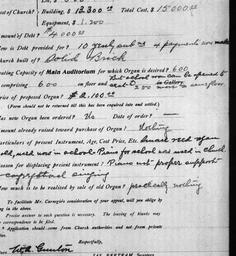 of Church? Building, $ 12 300 00 Total Cost, $ 15000 00
Equipment, $ 1.200
mount of Debt? $ 4000 00
ow is Debt provided for? 10 Yearly payments
hurch built of? Solid Brick
eating Capacity of Main Auditorium for which Organ is desired? 600
But school room can be opened to
omprising 600 on floor and in Gallery.
seat 250 more on same floor
rice of proposed Organ? $ 2.100 00
(Form should not be returned till this has been enquired into and settled.)
Has new Organ been ordered? No Date of order? —
mount already raised toward purchase of Organ? Nothing
articulars of present Instrument, Age, Cost Price, Etc.
old, used was in school. Piano for school was used in church
eason for displacing present instrument? Piano not proper support
congregational singing
ow much is to be realized by sale of old Organ? practically nothing
To facilitate Mr. Carnegie's consideration of your appeal, will you oblige by
ng in the above.
Precise answer to each question is necessary. The leaving of blanks may
correspondence to be disregarded.
* Application should come from Church authorities and not from private
Respectfully,
JAS. BERTRAM, Secretary